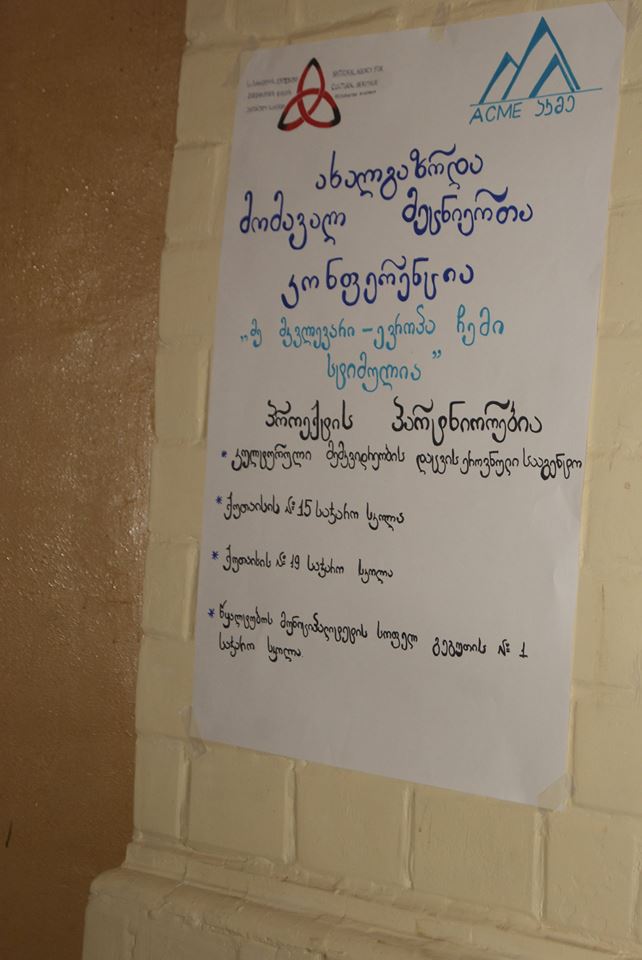 NATIONAL AGENCY FOR
CULTURAL HERITAGE
ACME აკმე
ახალგაზრდა
მომავალ მეცნიერთა
კონფერენცია
„მე მკვლევარი – ევროპა ჩემი
სტიმულია”
პროექტის პარტნიორებია
* კულტურული მემკვიდრეობის დაცვის ეროვნული სააგენტო
* ქუთაისის №15 საჯარო სკოლა
* ქუთაისის №19 საჯარო სკოლა
* წყალტუბოს მუნიციპალიტეტის სოფელ გეგუთის № 1
საჯარო სკოლა.